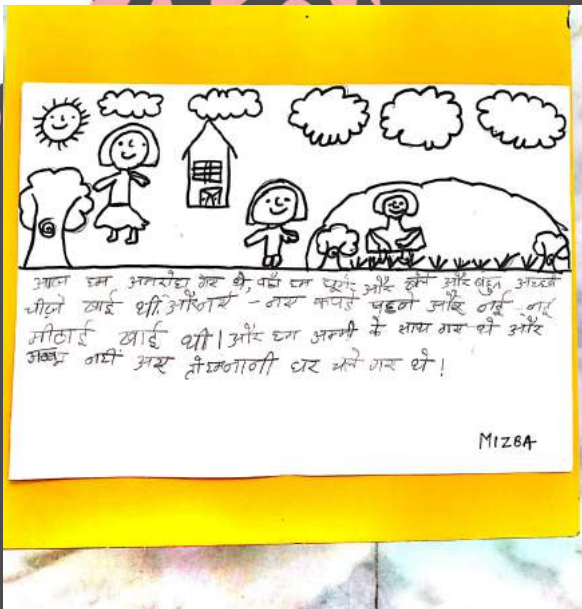 आज हम अमरोहा गए थे, वहाँ हम घूमे और खेले और बहुत अच्छी
चीजे खाई थी, और नए - नए कपडे पहने और नई - नई
मीठाई खाई थी। और हम अम्मी के साथ गए थे और
अब्बू नहीं अए तो हम नानी घर चले गए थे!
MIZBA